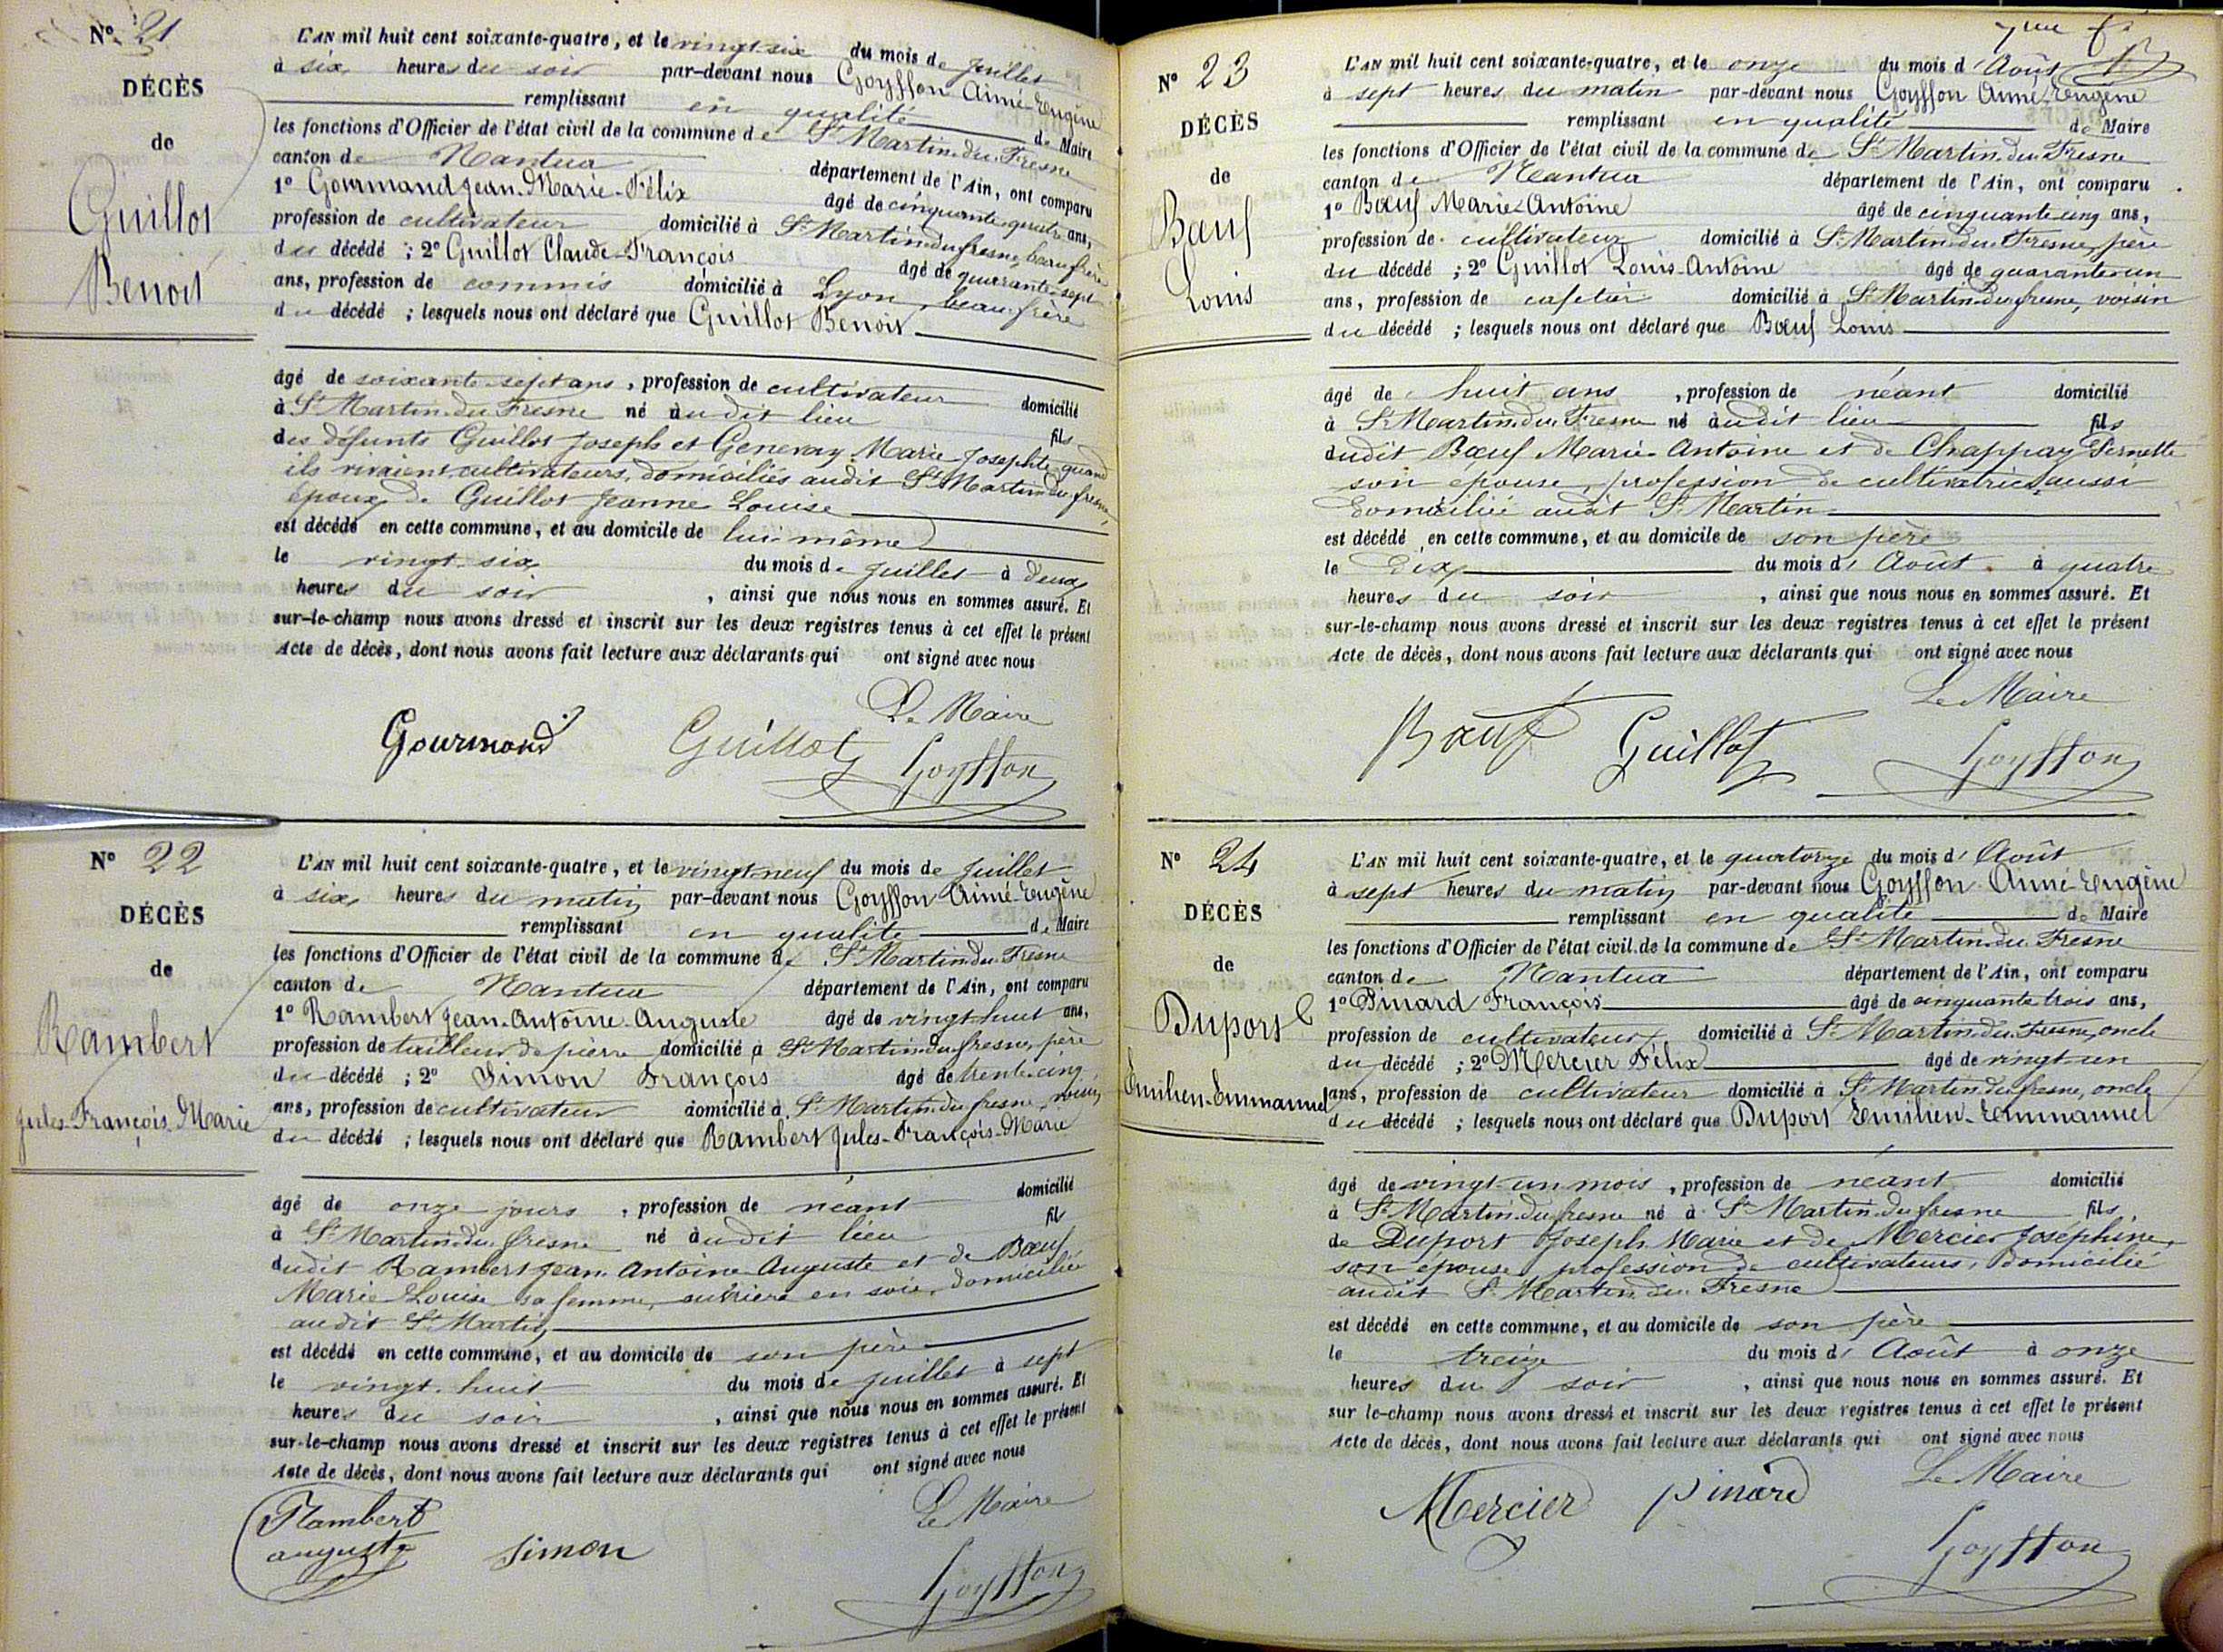 N° 21
DÉCÈS
de
Guillot
Benoit
L'AN mil huit cent soixante-quatre, et le vingt six du mois de Juillet
à six heures du soir par-devant nous Goyffon Aimé-Eugène
remplissant en qualité de Maire
les fonctions d'Officier de l'état civil de la commune de St Martin du Fresne
canton de Nantua département de l'Ain, ont comparu
1° Gourmand Jean-Marie-Félix âgé de cinquante quatre ans,
profession de cultivateur domicilié à St Martin du fresne, beau frère
du décédé ; 2° Guillot Claude-François âgé de quarante-sept
ans, profession de commis domicilié à Lyon, beau-frère
du décédé ; lesquels nous ont déclaré que Guillot Benoit
âgé de soixante-sept ans, profession de cultivateur domicilié
à St Martin du Fresne né audit lieu fils
des défunts Guillot Joseph et Genevay Marie Josephte, quand
ils vivaient cultivateurs, domiciliés audit St Martin du fresne,
époux de Guillot Jeanne Louise
est décédé en cette commune, et au domicile de lui même
le vingt six du mois de Juillet à deux
heures du soir, ainsi que nous nous en sommes assuré. Et
sur-le-champ nous avons dressé et inscrit sur les deux registres tenus à cet effet le présent
Acte de décès, dont nous avons fait lecture aux déclarants qui ont signé avec nous
Le Maire
Gourmand Guillot Goyffon
N° 22
DÉCÈS
de
Rambert
Jules-François-Marie
L'AN mil huit cent soixante-quatre, et le vingt neuf du mois de Juillet
à six heures du matin par-devant nous Goyffon Aimé-Eugène
remplissant en qualité de Maire
les fonctions d'Officier de l'état civil de la commune de St Martin du Fresne
canton de Nantua département de l'Ain, ont comparu
1° Rambert Jean-Antoine-Auguste âgé de vingt huit ans,
profession de tailleur de pierre domicilié à St Martin du fresne, père
du décédé ; 2° Simon François âgé de trente-cinq
ans, profession de cultivateur domicilié à St Martin du fresne, voisin
du décédé ; lesquels nous ont déclaré que Rambert Jules-François-Marie
âgé de onze jours, profession de néant domicilié
à St Martin du fresne né audit lieu fils
dudit Rambert Jean Antoine Auguste et de Bœuf
Marie-Louise sa femme, ouvrière en soie, domiciliée
audit St Martin
est décédé en cette commune, et au domicile de son père
le vingt-huit du mois de Juillet à sept
heures du soir, ainsi que nous nous en sommes assuré. Et
sur-le-champ nous avons dressé et inscrit sur les deux registres tenus à cet effet le présent
Acte de décès, dont nous avons fait lecture aux déclarants qui ont signé avec nous
Le Maire
Rambert
auguste Simon
Goyffon
N° 23
DÉCÈS
de
Bœuf
Louis
L'AN mil huit cent soixante-quatre, et le onze du mois d'Août
à sept heures du matin par-devant nous Goyffon Aimé-Eugène
remplissant en qualité de Maire
les fonctions d'Officier de l'état civil de la commune de St Martin du Fresne
canton de Nantua département de l'Ain, ont comparu
1° Bœuf Marie-Antoine âgé de cinquante cinq ans,
profession de cultivateur domicilié à St Martin du Fresne, père
du décédé ; 2° Guillot Louis-Antoine âgé de quarante un
ans, profession de cafetier domicilié à St Martin du fresne, voisin
du décédé ; lesquels nous ont déclaré que Bœuf Louis
âgé de huit ans, profession de néant domicilié
à St Martin du Fresne né audit lieu fils
dudit Bœuf Marie-Antoine et de Chappay Pernette
son épouse, profession de cultivatrice, aussi
domiciliée audit St Martin
est décédé en cette commune, et au domicile de son père
le Dix du mois d'Août à quatre
heures du soir, ainsi que nous nous en sommes assuré. Et
sur-le-champ nous avons dressé et inscrit sur les deux registres tenus à cet effet le présent
Acte de décès, dont nous avons fait lecture aux déclarants qui ont signé avec nous
Le Maire
Bœuf Guillot Goyffon
N° 24
DÉCÈS
de
Duport
Emilien-Emmanuel
L'AN mil huit cent soixante-quatre, et le quatorze du mois d'Août
à sept heures du matin par-devant nous Goyffon Aimé-Eugène
remplissant en qualité de Maire
les fonctions d'Officier de l'état civil de la commune de St Martin du Fresne
canton de Nantua département de l'Ain, ont comparu
1° Pinard François âgé de cinquante trois ans,
profession de cultivateur domicilié à St Martin du Fresne, oncle
du décédé ; 2° Mercier Félix âgé de vingt-un
ans, profession de cultivateur domicilié à St Martin du fresne, oncle
du décédé ; lesquels nous ont déclaré que Duport Emilien-Emmanuel
âgé de vingt un mois, profession de néant domicilié
à St Martin du fresne né à St Martin du fresne fils
de Duport Joseph Marie et de Mercier Joséphine,
son épouse, profession de cultivateurs, domicilié
audit St Martin du Fresne
est décédé en cette commune, et au domicile de son père
le treize du mois d'Août à onze
heures du soir, ainsi que nous nous en sommes assuré. Et
sur le-champ nous avons dressé et inscrit sur les deux registres tenus à cet effet le présent
Acte de décès, dont nous avons fait lecture aux déclarants qui ont signé avec nous
Le Maire
Mercier pinard
Goyffon